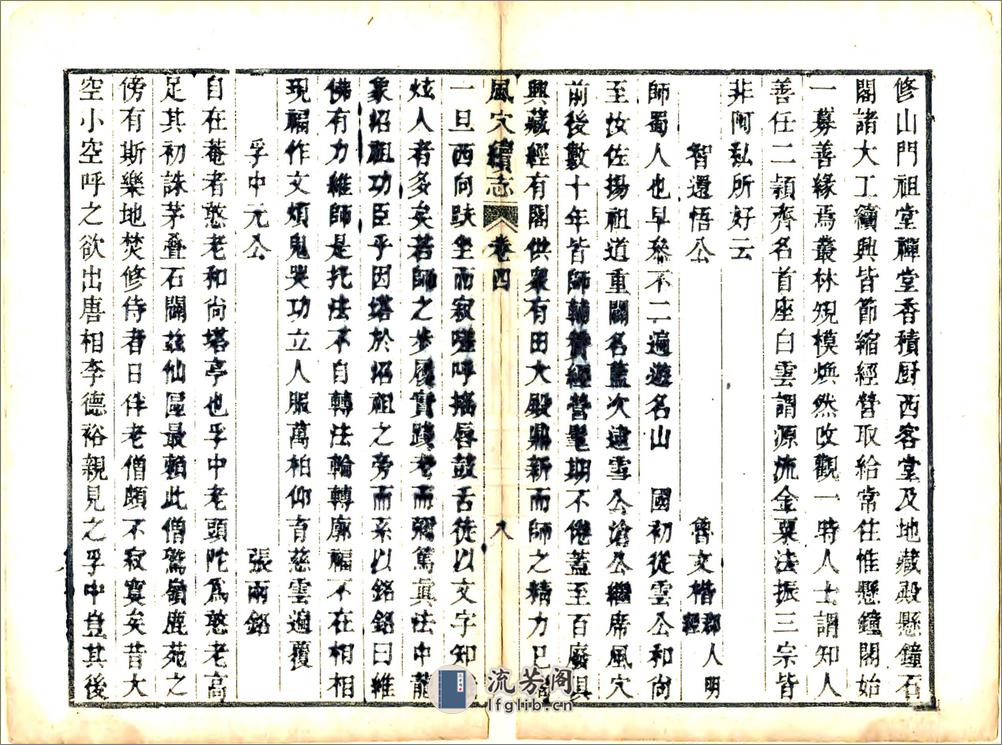 修山門祖堂禪堂香積厨西客堂及地藏殿懸鐘石
閣諸大工續興皆節縮經營取給常住惟懸鐘閣始
一募善緣焉叢林規模煥然改觀一時人士謂知人
善任二頴齊名首座白雲謂源流金粟法振三宗皆
非阿私所好云
智還悟公 魯文楷 郡人明經
師蜀人也早參不二遍遊名山 國初從雲公和尚
至汝佐揚祖道重闢名藍次逮雪公滄公繼席風穴
前後數十年皆師輔贊經營耄期不倦蓋至百廢具
興藏經有閣供衆有田大殿鼎新而師之精力已
風穴續志 卷四 九
一旦西向趺坐而寂嗟呼搖唇鼓舌徒以文字知
炫人者多矣若師之步履實踐老而彌篤真法中龍
象紹祖功臣乎因塔於紹祖之旁而系以銘銘曰維
佛有力維師是托法不自轉法輪轉廓福不在相相
現福作文煩鬼哭功立人服萬柏仰育慈雲遍覆
孚中元公 張雨銘
自在菴者憨老和尚塔亭也孚中老頭陀爲憨老高
足其初誅茅疊石闢茲仙區最賴此僧鷲嶺鹿苑之
傍有斯樂地焚修侍者日伴老僧頗不寂寞矣昔大
空小空呼之欲出唐相李德裕親見之孚中豈其後
流芳阁
lfglib.cn